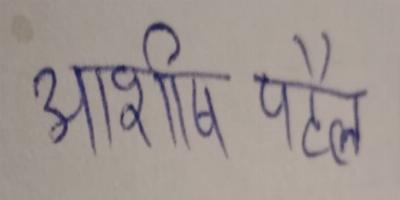 आशीष पटैल